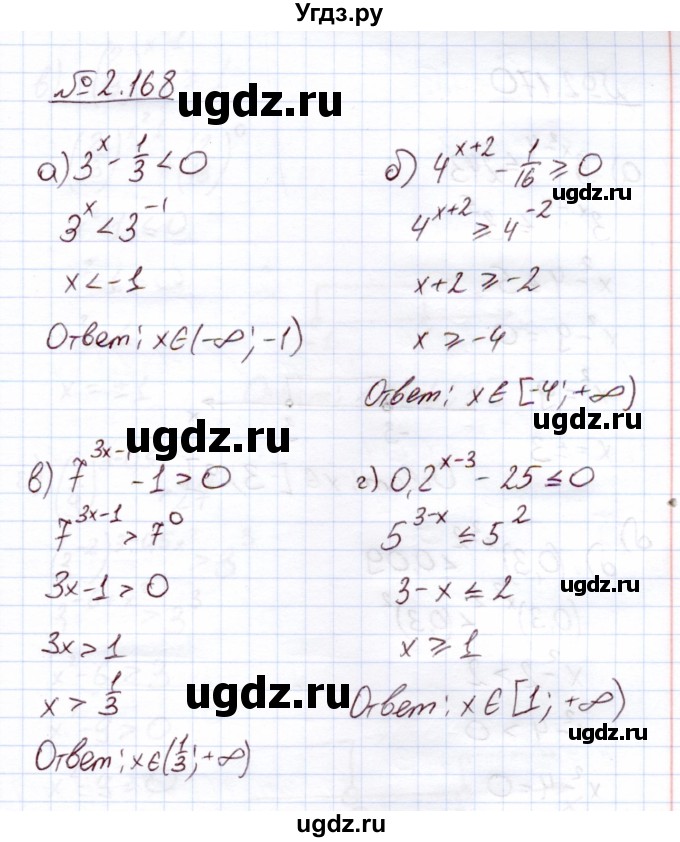 Угдз.ру
№ 2.168
ugdz.ru
а) 3^x - 1/3 < 0
3^x < 3^-1
x < -1
Ответ: x∈(-∞; -1)
б) 4^(x+2) - 1/16 ≥ 0
ugdz.ru
4^(x+2) ≥ 4^-2
x+2 ≥ -2
x ≥ -4
Ответ: x∈[-4; +∞)
ugdz.ru
в) 7^(3x-1) - 1 > 0
7^(3x-1) > 7^0
3x-1 > 0
3x > 1
x > 1/3
Ответ: x∈(1/3; +∞)
г) 0,2^(x-3) - 25 ≤ 0
5^(3-x) ≤ 5^2
3-x ≤ 2
ugdz.ru
x ≥ 1
ugdz.ru
Ответ: x∈[1; +∞)
ugdz.ru
ugdz.ru